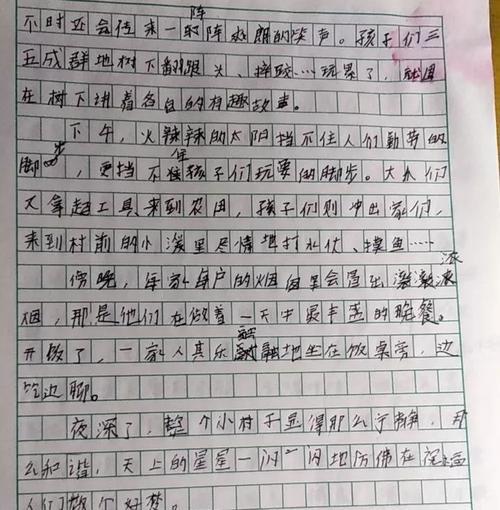 不时还会传来一阵阵爽朗的笑声。孩子们三
五成群地树下翻跟头、摔跤……玩累了,就围
在树下讲着各自的有趣故事。
下午,火辣辣的太阳挡不住人们勤劳的
脚步,更挡不住孩子们玩耍的脚步。大人们
又拿起工具、来到农田,孩子们则冲出家们,
来到村前的小溪里尽情地打水仗、摸鱼……
傍晚,每家每户的烟囱里会冒出滚滚浓
烟,那是他们在做着一天中最丰盛的晚餐。
开饭了,一家人其乐融融地坐在饭桌旁,边
吃边聊。
夜深了,整个小村子显得那么宁静,那
么和谐,天上的星星一闪一闪地仿佛在
人们做个好梦。